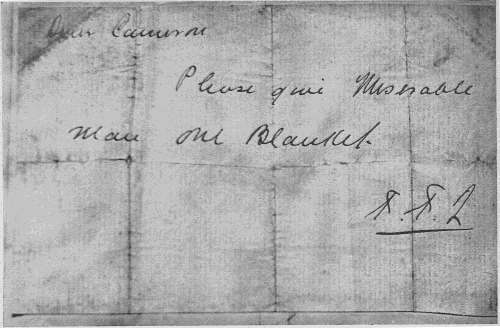 Dear Cameron
Please give Miserable
Man one Blanket.
F. F. L